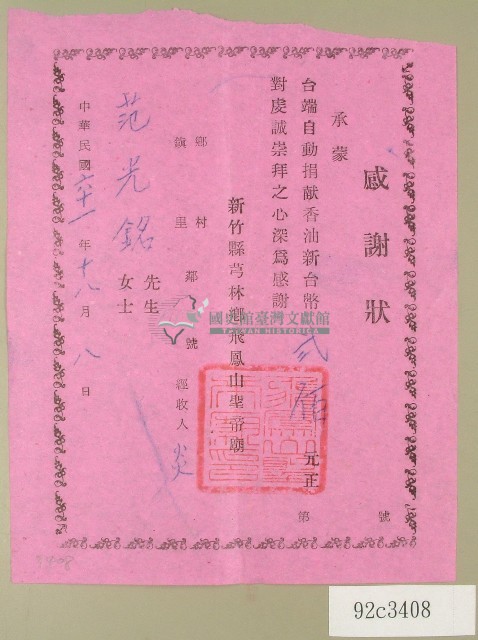 感謝狀
第 號
承蒙
台端自動捐献香油新台幣 弍佰 元正
對虔誠崇拜之心深爲感謝
新竹縣芎林鄉飛鳳山聖帝廟
經收人 炎
鄉 村
鎮 里 鄰 號
范光銘 先生
女士
中華民國六十一年 月八日
國史館臺灣文獻館
TAIWAN HISTORICA
92c3408